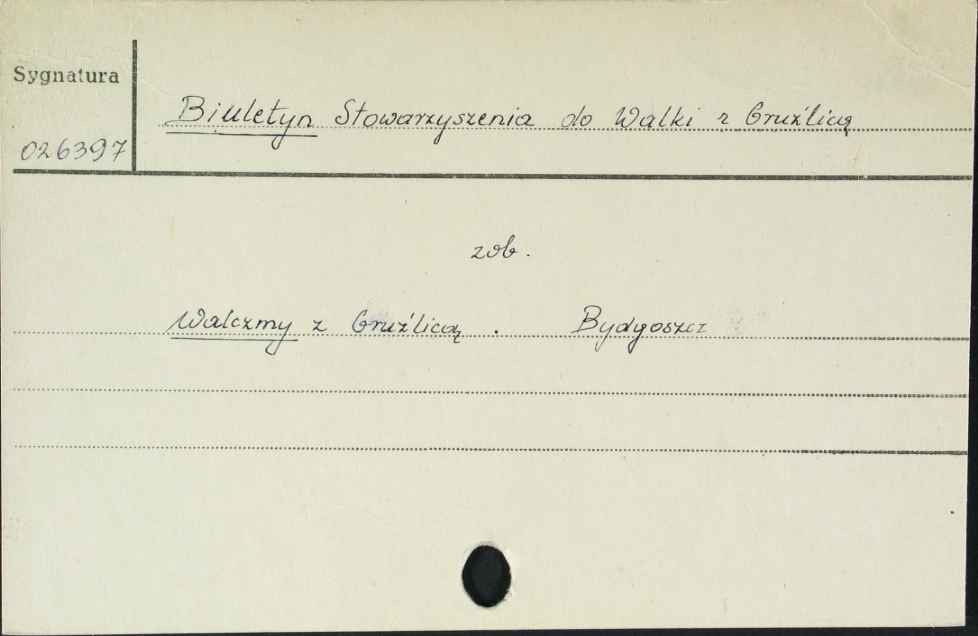 Sygnatura
026397
Biuletyn Stowarzyszenia do Walki z Gruźlicą
zob.
Walczmy z Gruźlicą . Bydgoszcz